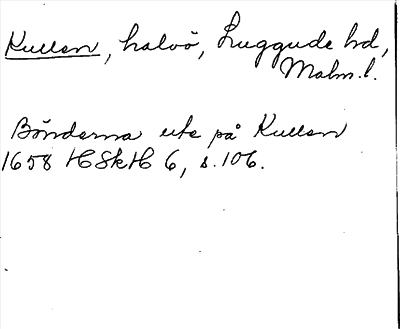 Kullen, halvö, Luggude hd,
Malm.l.
Bönderna ute på Kullen
1658 HSkH 6, s. 106.